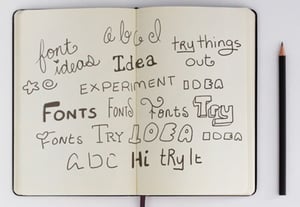 a b c d
font ideas
Idea
try things out
EXPERIMENT IDEA
FONTS Fonts Fonts Try
Fonts TRY IDEA IDEA
a b c Hi tRy It